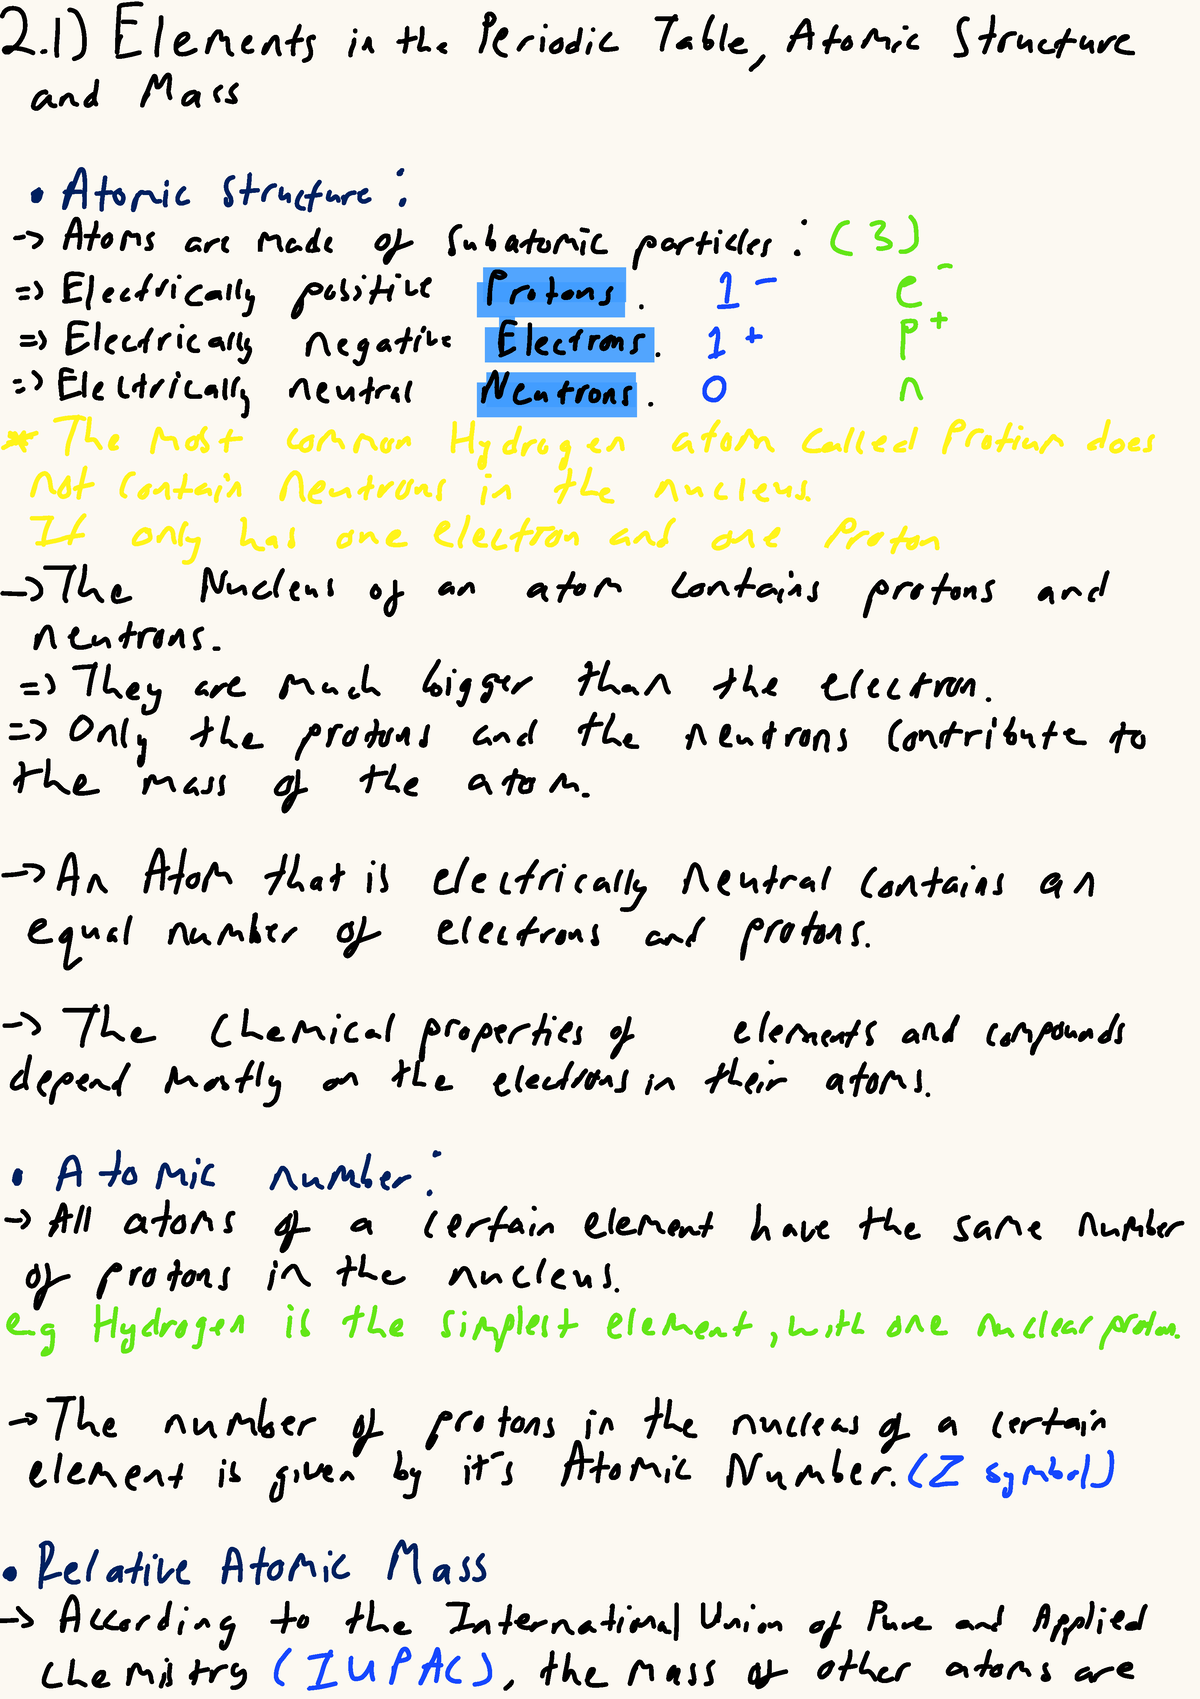 2.1) Elements in the Periodic Table, Atomic Structure
and Mass
• Atomic Structure:
-> Atoms are made of subatomic particles: (3)
=> Electrically positive Protons. 1- e-
=> Electrically negative Electrons. 1+ P+
=> Electrically neutral Neutrons. 0 n
* The most common Hydrogen atom called Protium does
not contain neutrons in the nucleus.
It only has one electron and one Proton
-> The Nucleus of an atom contains protons and
neutrons.
=> They are much bigger than the electron.
=> Only the protons and the neutrons contribute to
the mass of the atom.
-> An Atom that is electrically neutral contains an
equal number of electrons and protons.
-> The chemical properties of elements and compounds
depend mostly on the electrons in their atoms.
• Atomic number:
-> All atoms of a certain element have the same number
of protons in the nucleus.
eg Hydrogen is the simplest element, with one nuclear proton.
-> The number of protons in the nucleus of a certain
element is given by it's Atomic Number. (Z symbol)
• Relative Atomic Mass
-> According to the International Union of Pure and Applied
chemistry (IUPAC), the mass of other atoms are